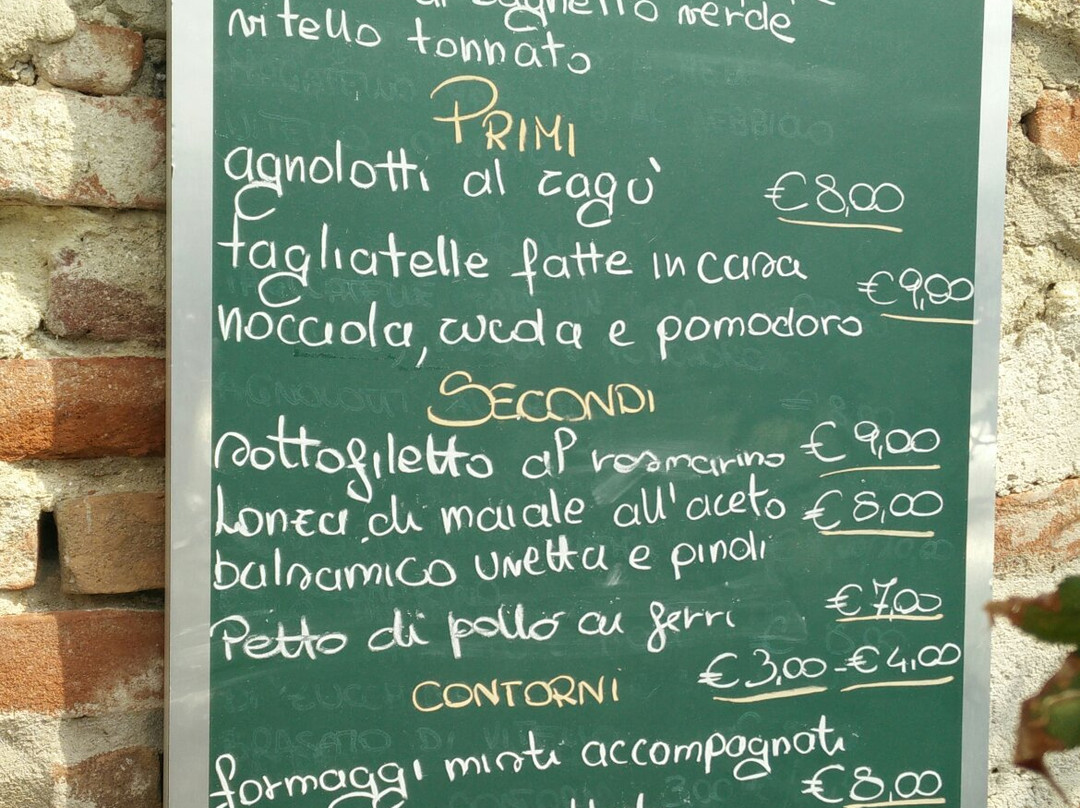 verde
vitello tonnato
PRIMI
agnolotti al ragù €8,00
tagliatelle fatte in casa €9,00
nocciola, rucola e pomodoro
SECONDI
sottofiletto al rosmarino €9,00
Lonza di maiale all'aceto €8,00
balsamico uvetta e pinoli
Petto di pollo ai ferri €7,00
CONTORNI €3,00-€4,00
formaggi misti accompagnati
€8,00